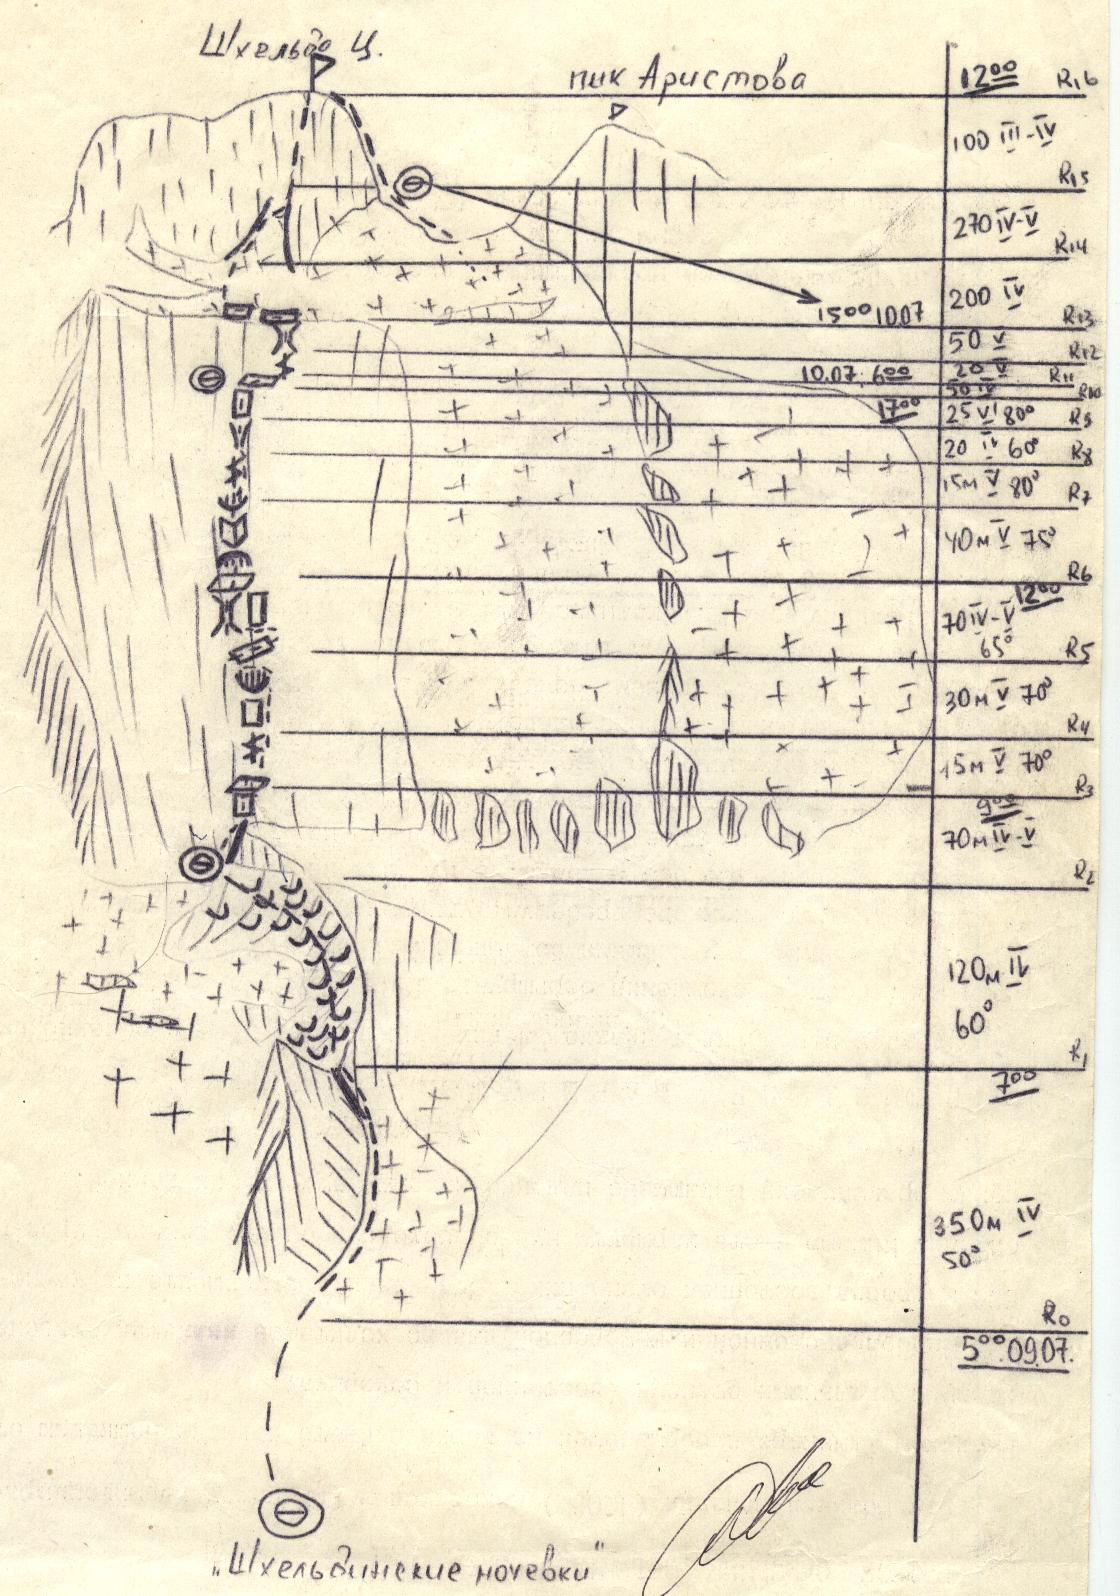 Шхельда Ц.
пик Аристова
12⁰⁰ R₁₆
100 III-IV
R₁₅
270 IV-V
R₁₄
200 IV
15⁰⁰ 10.07
R₁₃
50 V
R₁₂
10.07. 6⁰⁰ 20 V R₁₁
50 IV R₁₀
17⁰⁰ 25 VI 80° R₉
20 IV 60° R₈
15м V 80°
R₇
40м V 75°
R₆
12⁰⁰
70 IV-V
65° R₅
30м V 70°
R₄
15м V 70°
R₃
9⁰⁰
70м IV-V
R₂
120м IV
60°
R₁
7⁰⁰
350м IV
50°
R₀
5⁰⁰.09.07.
„Шхельдинские ночевки"